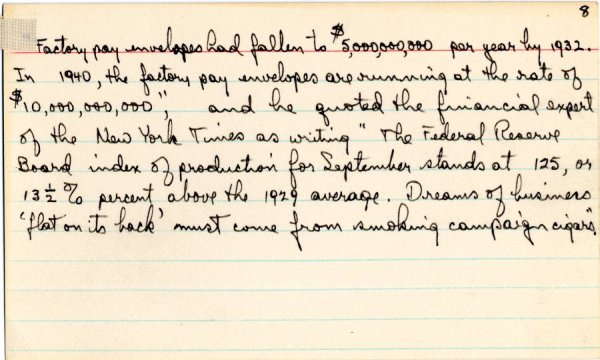 8
Factory pay envelopes had fallen to $5,000,000,000 per year by 1932.
In 1940, the factory pay envelopes are running at the rate of
$10,000,000,000", and he quoted the financial expert
of the New York Times as writing "The Federal Reserve
Board index of production for September stands at 125, or
13 1/2 % percent above the 1929 average. Dreams of business
'flat on its back' must come from smoking campaign cigars".